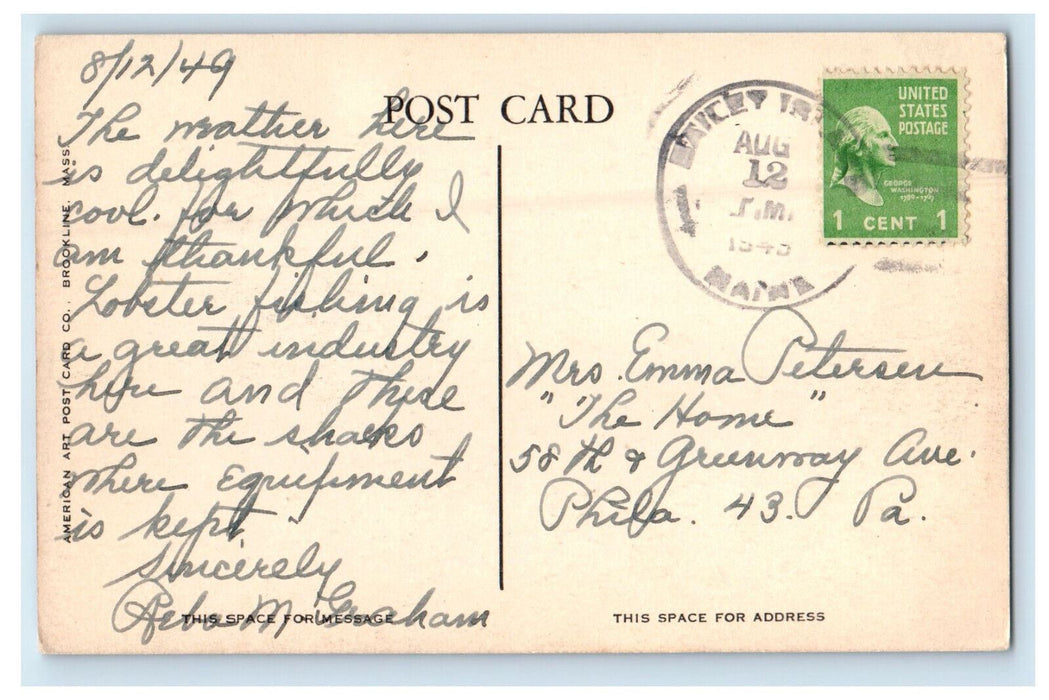 8/12/49
POST CARD
The weather here
is delightfully
cool. for which I
am thankful.
Lobster fishing is
a great industry
here and these
are the shacks
where equipment
is kept.
Sincerely
Reba M Graham
THIS SPACE FOR MESSAGE
AMERICAN ART POST CARD CO., BROOKLINE, MASS.
BAILEY
AUG
12
1949
MAINE
UNITED
STATES
POSTAGE
GEORGE
WASHINGTON
1789-1797
1 CENT 1
Mrs. Emma Petersen
"The Home"
58th & Greenway Ave.
Phila. 43. Pa.
THIS SPACE FOR ADDRESS